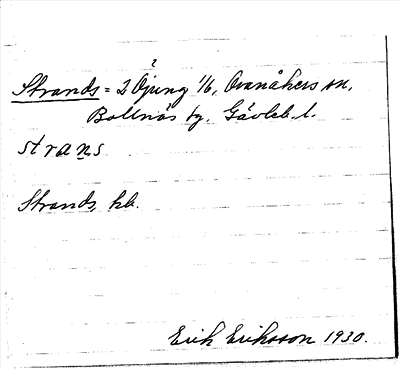 ?
Strands = 2 Öjung 1/6, Ovanåkers sn,
Bollnäs tg. Gävleb. l.
strans
Strands, kb.
Erik Eriksson 1930.